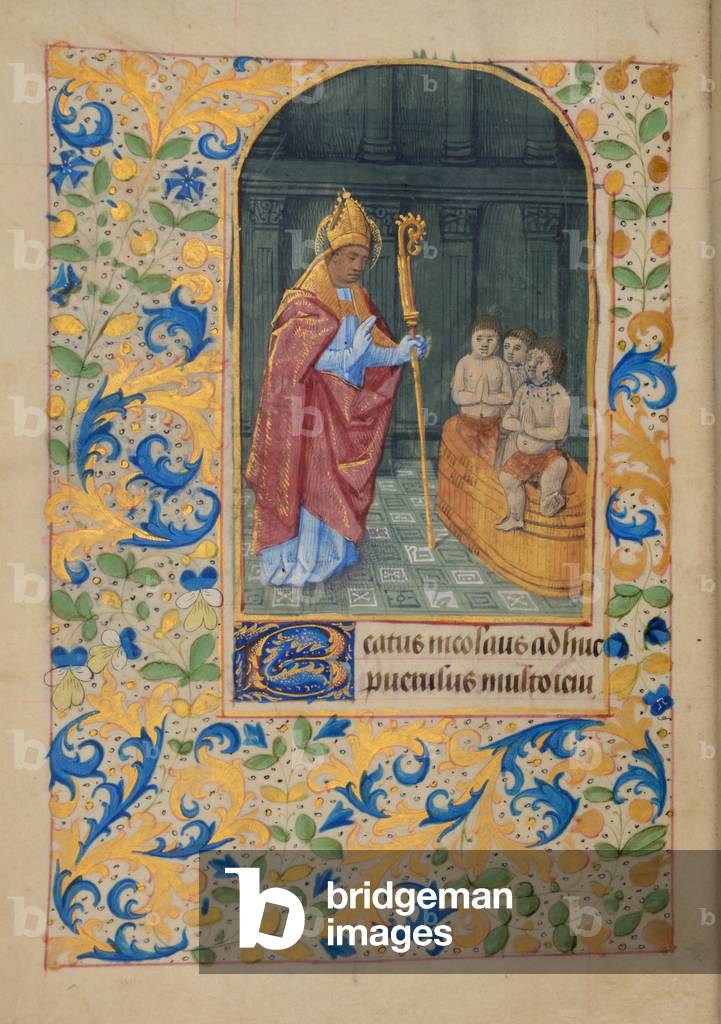 Beatus nicolaus adhuc
puerulus multo ieiu
b bridgeman
images